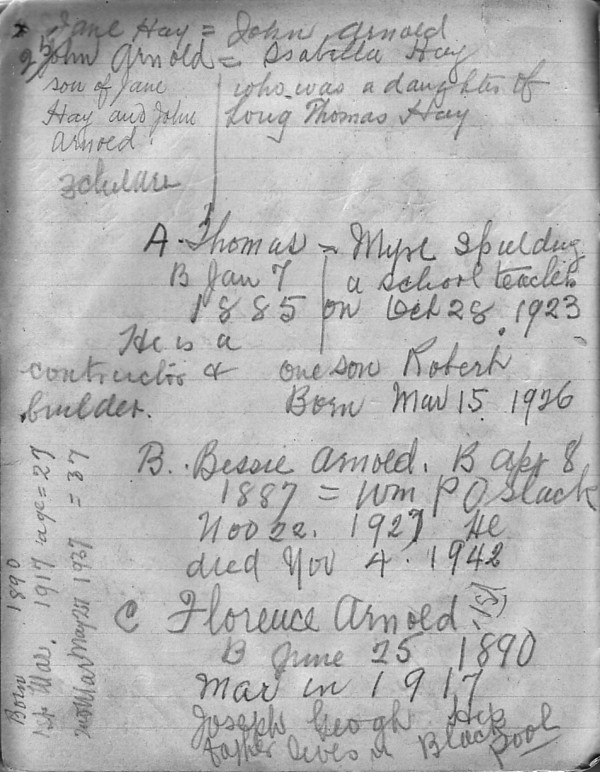 * Jane Hay = John Arnold
2nd John Arnold = Isabella Hay
son of Jane
Hay and John
Arnold.
who was a daughter of
Long Thomas Hay
3 children
A. Thomas = Myrl Spulding
B Jan 7
1885
a school teacher
on Oct 28. 1923
He is a
contructor &
builder.
one son Robert
Born Mar 15 1926
B. Bessie Arnold. B Apr 8
1887 = Wm P O Slack
Nov 22. 1927 He
died Nov 4. 1942
C Florence Arnold (1st)
B June 25 1890
Mar in 1917
Joseph Geogh. His
father lives in Blackpool
Born 1890
1st Mar. 1917 age = 27
2nd Mar May 1937 = 37